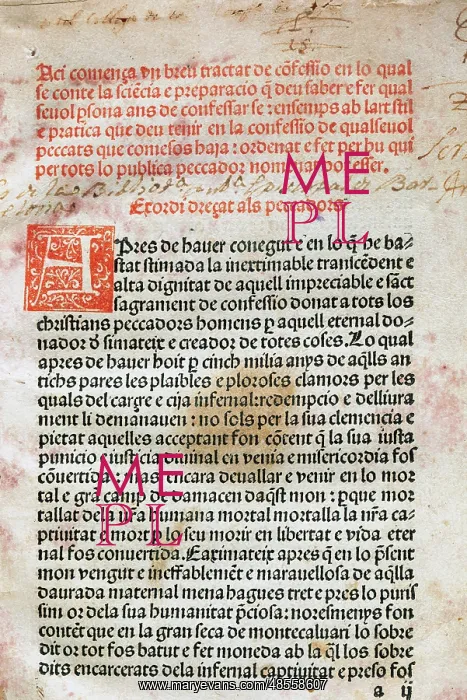 Aci comença vn breu tractat de cõfessio en lo qual
se conte la sciẽcia e preparacio q̃ deu saber e fer qual
seuol psona ans de confessar se : ensemps ab lart stil
e pratica que deu tenir en la confessio de qualseuol
peccats que comesos haja : ordenat e fet per hu qui
per tots lo publica peccador nom
Exordi dreçat als peccadors
APres de hauer conegut e en lo q̃ he ba-
stat stimada la inextimable transcẽdent e
alta dignitat de aquell impreciable e sãct
sagrament de confessio donat a tots los
christians peccadors homens ꝑ aquell eternal do-
nador d̕ simateix e creador de totes coses. Lo qual
apres de hauer hoit ꝑ cinch milia anys de aq̃lls an
tichs pares les plaibles e ploroses clamors per les
quals del carçre e cija infernal: redempcio e delliura
ment li demanauen : no sols per la sua clemencia e
pietat aquelles acceptant fon cõtent q̃ la sua iusta
punicio e iusticia diuinal en venia e misericordia fos
cõuertida mas encara deuallar e venir en lo mor
tal e grã camp de damacen daq̃st mon : ꝑque mor
tallat de la sua humana mortal mortalla la nr̃a ca-
ptiuitat e mort ꝑ lo seu morir en libertat e vida eter
nal fos conuertida. E aximateix apres q̃ en lo pr̃sent
mon vengut e ineffablemẽt e marauellosa de aq̃lla
daurada maternal mena hagues tret e pres lo puris
sim or dela sua humanitat pr̃ciosa : noresmenys fon
contẽt que en la gran seca de montecaluari lo sobre
dit or tot fos batut e fet moneda ab la q̃l los sobre
dits encarcerats dela infernal captiuitat e preso fos
a ij
ME
PL
ME
PL
www.maryevans.com/48558607